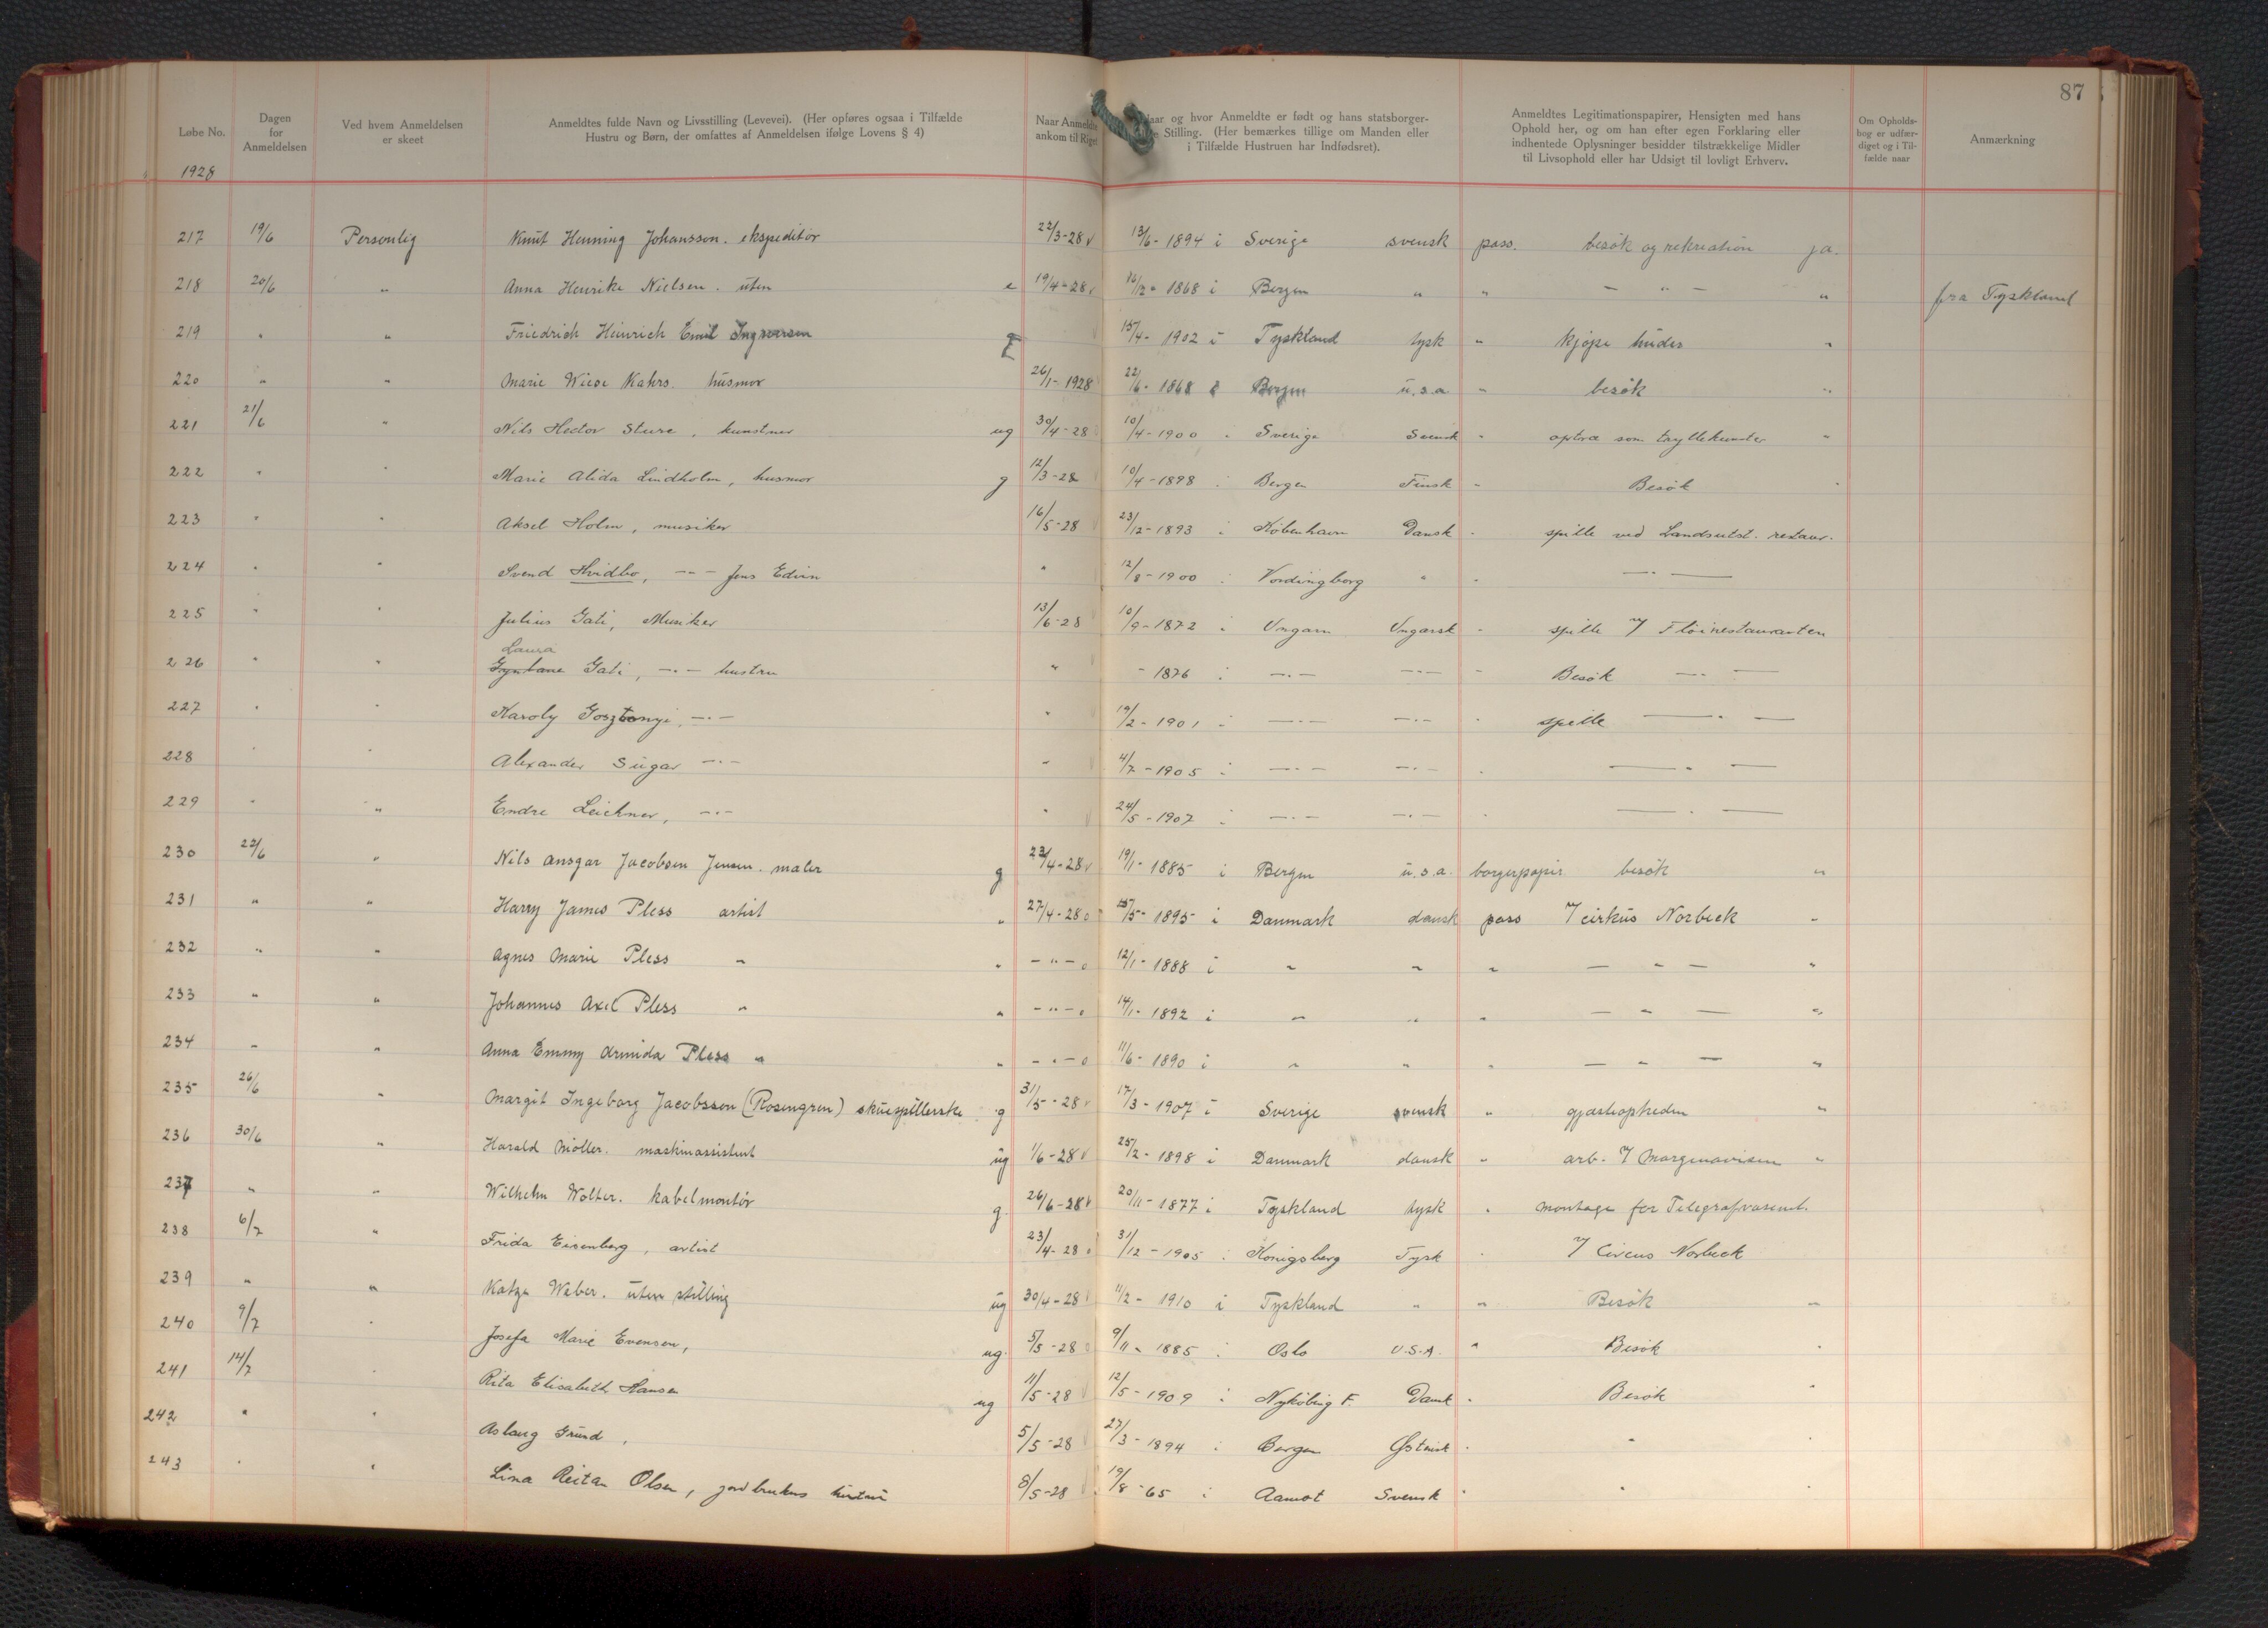 87
Løbe No. Dagen for Anmeldelsen Ved hvem Anmeldelsen er skeet Anmeldtes fulde Navn og Livsstilling (Levevei). (Her opføres ogsaa i Tilfælde Hustru og Børn, der omfattes af Anmeldelsen ifølge Lovens § 4) Naar Anmeldte ankom til Riget og hvor Anmeldte er født og hans statsborger- Stilling. (Her bemærkes tillige om Manden eller i Tilfælde Hustruen har Indfødsret). Anmeldtes Legitimationspapirer, Hensigten med hans Ophold her, og om han efter egen Forklaring eller indhentede Oplysninger besidder tilstrækkelige Midler til Livsophold eller har Udsigt til lovligt Erhverv. Om Opholds- bog er udfær- diget og i Til- fælde naar Anmærkning
1928
217 19/6 Personlig Knut Henning Johansson. ekspeditør 22/3-28 v 13/6-1894 i Sverige svensk pass. besøk og rekreation ja.
218 20/6 " Anna Henrike Nielsen. uten e 19/4-28 v 16/12-1868 i Bergen " " - " - " fra Tyskland
219 " " Friedrich Heinrich Emil Ingwersen 15/4-1902 i Tyskland tysk " kjøpe huder "
220 " " Marie Wiese Kahrs. husmor 26/1-1928 22/6-1868 i Bergen u.s.a " besøk "
221 21/6 " Nils Hector Sture, kunstner ug 30/4-28 10/4-1900 " Sverige Svensk " optræ som tryllekunstler "
222 " " Marie Alida Lindholm, husmor g 12/3-28 10/4-1898 i Bergen Finsk " Besøk "
223 " " Aksel Holm, musiker 16/5-28 23/12-1893 i København Dansk " spille ved Landsutst. restaur.
224 " " Svend Hvidbo, -"- Jens Edvin " 12/8-1900 i Vordingborg " " -"-
225 " " Julius Gati, Musiker 13/6-28 10/9-1872 i Ungarn Ungarsk " spille Fløirestauranten
Laura
226 " " Gati, -"- hustru " -1876 i -"- -"- " Besøk -"-
227 " " Karoly Gosztonyi, -"- " 19/2-1901 i -"- -"- " spille -"-
228 " " Alexander Sugar -"- " 4/7-1905 i -"- -"- " -"-
229 " " Endre Leichner, -"- " 24/5-1907 i -"- -"- " -"-
230 22/6 " Nils Ansgar Jacobsen Jensen. maler g 23/4-28 v 19/1-1885 i Bergen u.s.a. borgerpapir besøk "
231 " " Harry James Pless artist " 27/4-28 o /5-1895 i Danmark dansk pass cirkus Norbeck "
232 " " Agnes Marie Pless " " -"- o 12/1-1888 i " " " - " - "
233 " " Johannes Axel Pless " " -"- o 14/1-1892 i " " " - " - "
234 " " Anna Emmy Armida Pless " " -"- o 11/6-1890 i " " " - " - "
235 26/6 " Margit Ingeborg Jacobsson (Rosengren) skuespillerske g 31/5-28 v 17/3-1907 i Sverige svensk " gjesteoptreden "
236 30/6 " Harald Møller. maskinassistent ug 1/6-28 v 25/2-1898 i Danmark dansk " arb. Morgenavisen "
237 " " Wilhelm Wolter. kabelmontør g. 26/6-28 v 20/11-1877 i Tyskland tysk " montage for Telegrafvæsenet.
238 6/7 " Frida Eisenberg, artist 23/4-28 o 31/12-1905 i Königsberg Tysk " Circus Norbeck
239 " " Katza Weber. uten stilling ug 30/4-28 11/2-1910 i Tyskland " " Besøk "
240 9/7 " Josefa Marie Evensen, ug. 5/5-28 9/11-1885 i Oslo U.S.A. " Besøk "
241 14/7 " Rita Elisabeth Hansen ug 11/5-28 12/5-1909 i Nykøbing F. Dansk " Besøk "
242 " " Aslaug Grund, 5/5-28 27/3-1894 i Bergen " " "
243 " " Lina Reitan Olsen, jordbrukers hustru 8/5-28 19/8-65 i Aamot Svensk " " "